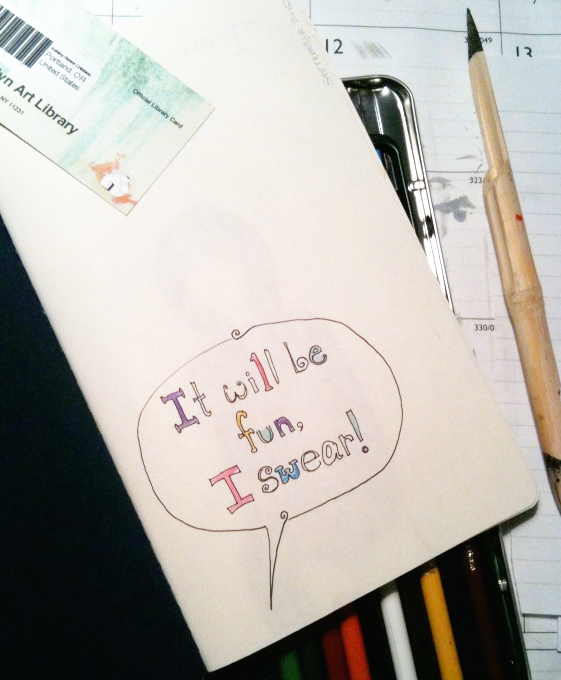 Portland, OR
United States
lyn Art Library
NY 11231
Official Library Card
12
13
323/
330/0
It will be
fun,
I swear!